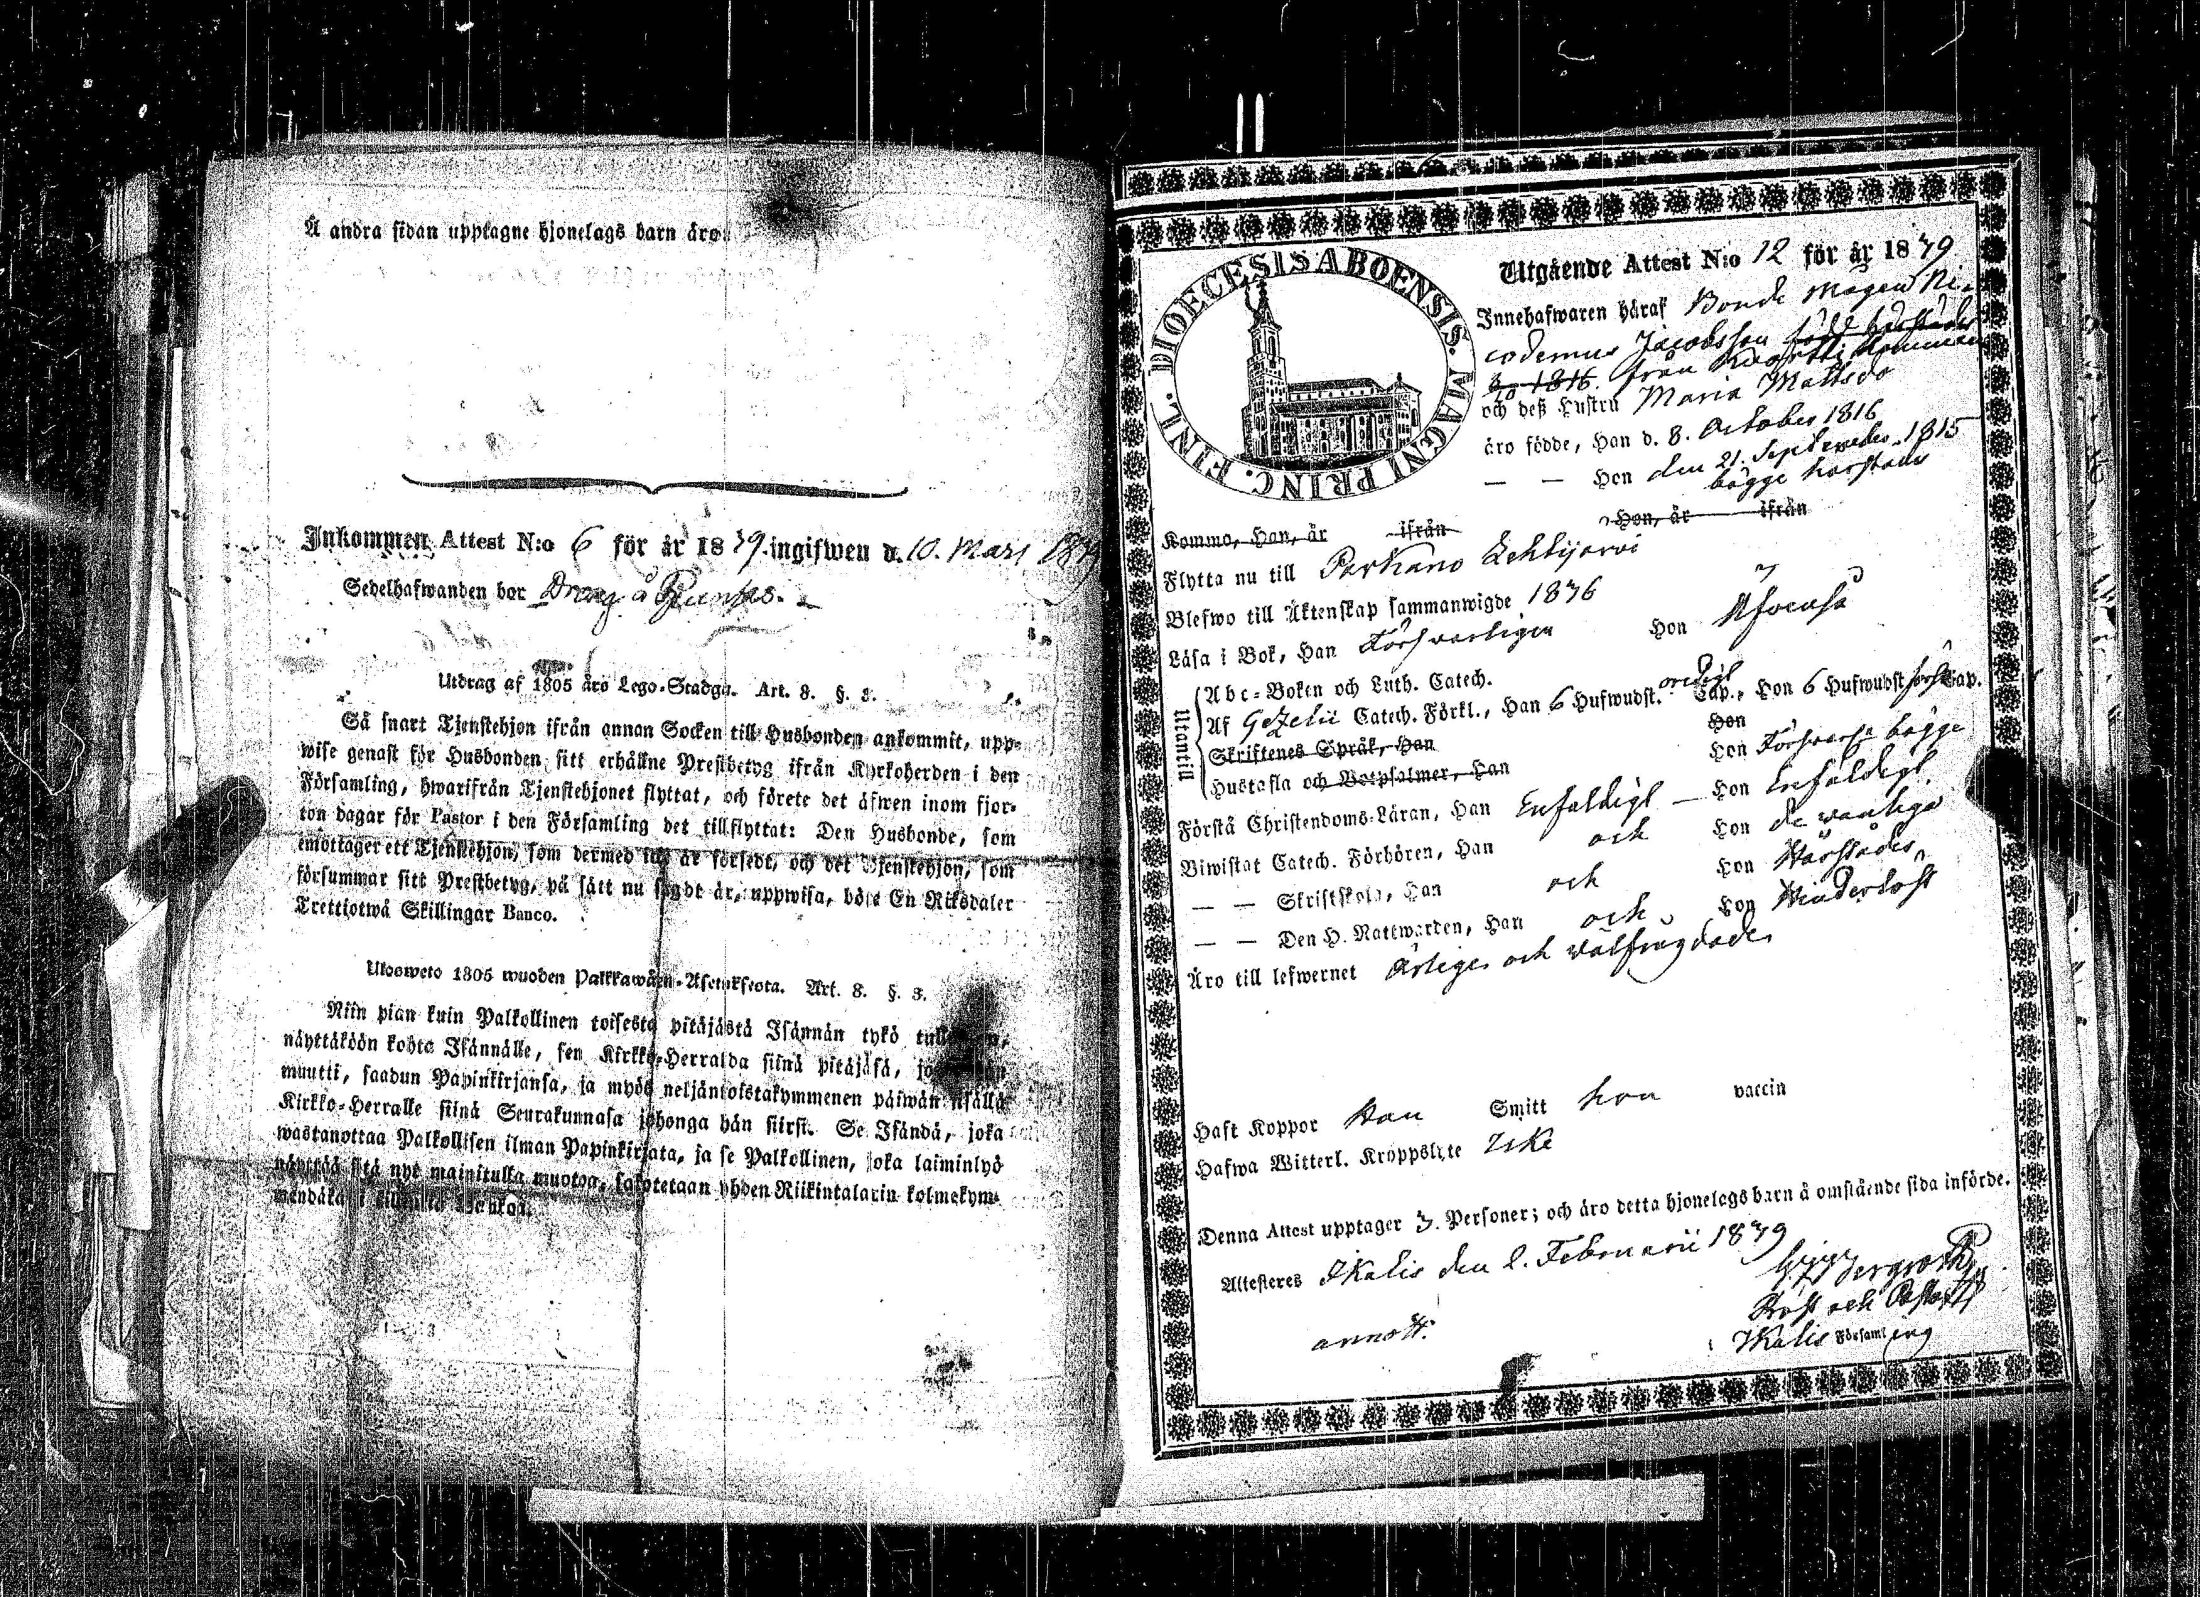 Å andra sidan upptagne hjonelags barn äro:
Inkommen Attest N:o 6 för år 1879. ingifwen d. 10. Mars 1879
Sedelhafwanden bor
Utdrag af 1805 års Lego-Stadga. Art. 8. §. 3.
Så snart Tjenstehjon ifrån annan Socken till Husbonden ankommit, upp-
wise genast för Husbonden sitt erhållne Prestbetyg ifrån Kyrkoherden i den
Församling, hwarifrån Tjenstehjonet flyttat, och förete det äfwen inom fjor-
ton dagar för Pastor i den Församling det tillflyttat: Den Husbonde, som
emottager ett Tjenstehjon, som dermed icke är försedt, och det Tjenstehjon, som
försummar sitt Prestbetyg, på sätt nu sagdt är, uppwisa, böte En Riksdaler
Trettiotwå Skillingar Banco.
Ulosweto 1805 wuoden Palkkawäen-Asetuksesta. Art. 8. §. 3.
Niin pian kuin Palkollinen toisesta pitäjästä Isännän tykö
näyttäköön kohta Isännälle, sen Kirkko-Herralda siinä pitäjäsä,
muutti, saadun Papinkirjansa, ja myös neljäntoistakymmenen päiwän sisällä
Kirkko-Herralle siinä Seurakunnasa johonga hän siirsi. Se Isändä, joka
wastanottaa Palkollisen ilman Papinkirjata, ja se Palkollinen, joka laiminlyö
näyttää sitä nyt mainitulla muotoa, sakotetaan yhden Riikintalarin kolmekym-
mendäkaxi
DIOECESIS ABOENSIS. MAGNI PRINC. FINL.
Utgående Attest N:o 12 för år 1879
Innehafwaren häraf Bonde Magen Ni-
codemus Jacobsson född
8/10 1816. från
och deß Hustru Maria Mattsdo
äro födde, Han d. 8. October 1816
— — Hon den 21. September 1815
bägge härstädes
Komma, Han, är ifrån Hon, är ifrån
Flytta nu till Parkano Lehtijärvi
Blefwo till Äktenskap sammanwigde 1876
Läsa i Bok, Han Försvarligen Hon Äfvenså
Utantill
Abc-Boken och Luth. Catech.
Af Gezelii Catech. Förkl., Han 6 Hufwudst. Cap., Hon 6 Hufwudst Cap.
Skriftenes Språk, Han Hon
Hustafla och Botpsalmer, Han Hon Försvarligt bägge
Förstå Christendoms-Läran, Han Enfaldigt — Hon Enfaldigt.
Biwistat Catech. Förhören, Han och Hon de vanliga
— — Skriftskola, Han och Hon Härstädes
— — Den H. Nattwarden, Han och Hon Hinderlöst
Äro till lefwernet ärliga och välfrägdade
Haft Koppor Han Smitt hon vaccin
Hafwa Witterl. Kroppslyte Icke
Denna Attest upptager 2. Personer; och äro detta hjonelags barn å omstående sida införde.
Attesteres Ikalis den 2. Februarii 1879
Prost och Pastor
Ikalis Församling